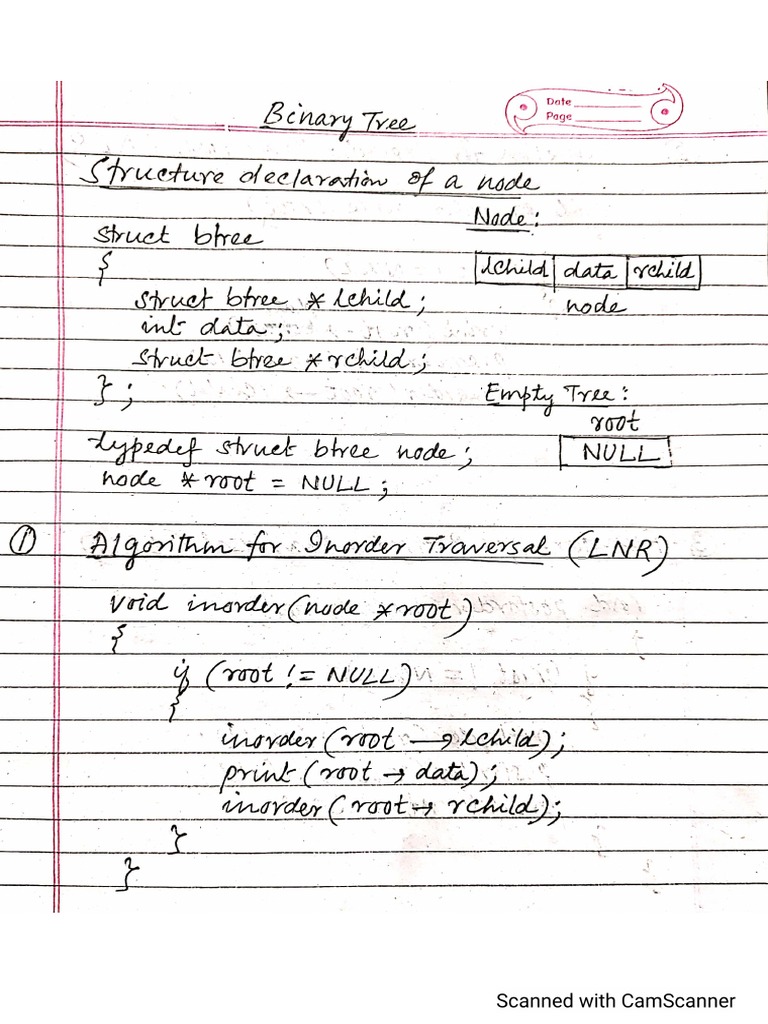 Binary Tree
Date
Page
Structure declaration of a node
Node:
struct btree
{
lchild data rchild
struct btree * lchild;
node
int data;
struct btree * rchild;
};
Empty Tree:
root
typedef struct btree node;
NULL
node * root = NULL;
① Algorithm for Inorder Traversal (LNR)
void inorder(node * root)
{
if (root != NULL)
{
inorder(root → lchild);
print(root → data);
inorder(root → rchild);
}
}
Scanned with CamScanner